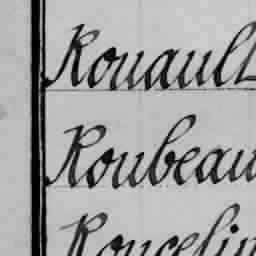 Rouault
Roubeau
Roucelin